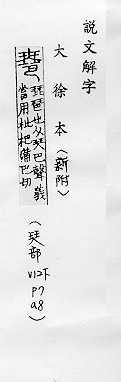 說文解字
大徐本(新附)
琶
琵琶也从珡巴聲義
當用枇杷蒲巴切
(珡部 V12下 P7 a8)